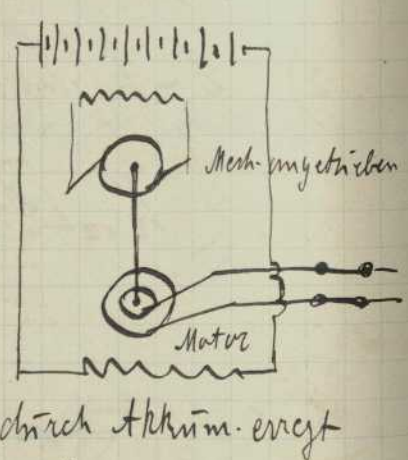 Mech. angetrieben
Motor
durch Akkum. erregt